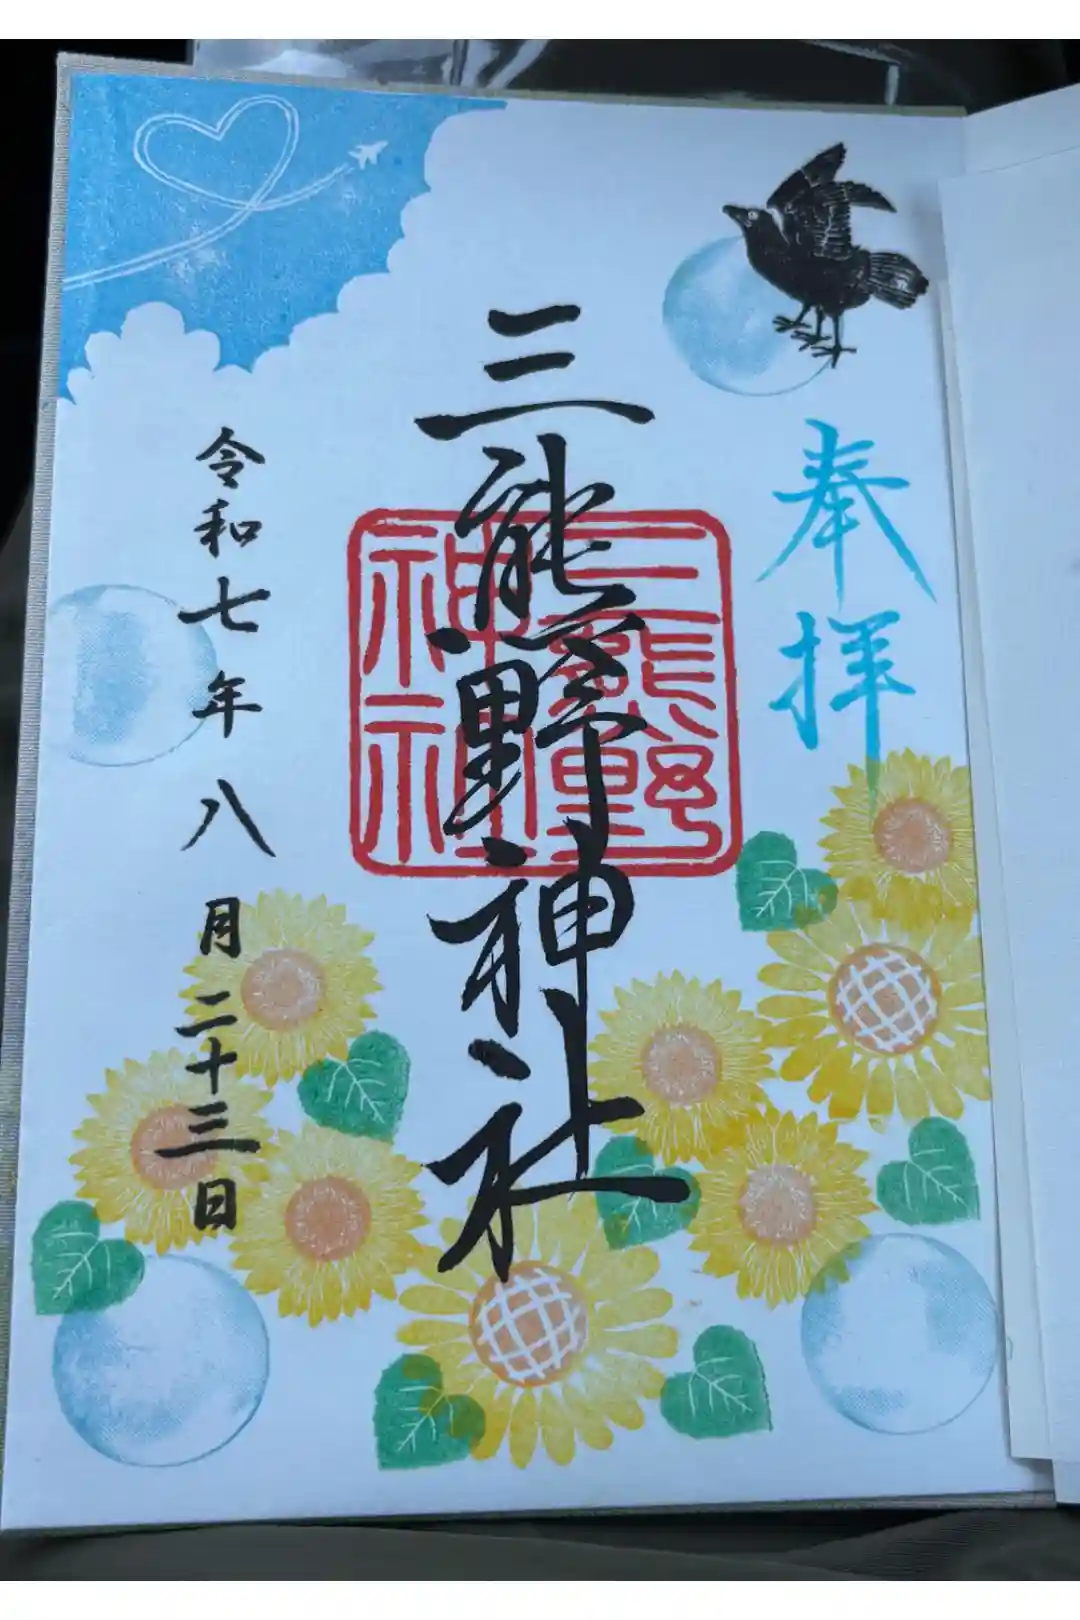 奉拝
三熊野神社
三熊野
神社
令和七年八月二十三日